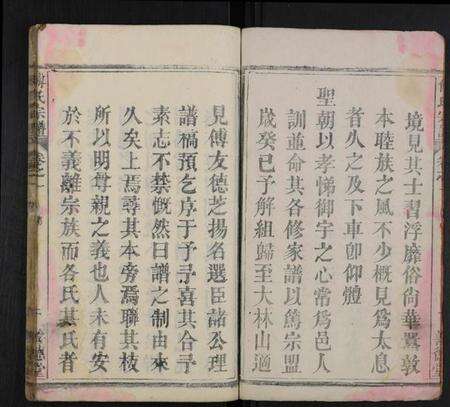 境見其士習浮靡俗尙華異敦
本睦族之風不少槪見爲太息
者久之及下車卽仰體
聖朝以孝悌御宇之心常爲邑人
訓並命其各修家譜以篤宗盟
歲癸巳予解組歸至大林山適
見傅友德芝揚名選臣諸公理
譜稿預乞序于予予喜其合予
素志不禁慨然曰譜之制由來
久矣上焉尋其本旁焉聯其枝
所以明尊親之義也人未有安
於不義離宗族而各氏其氏者
傅氏宗譜 卷之一